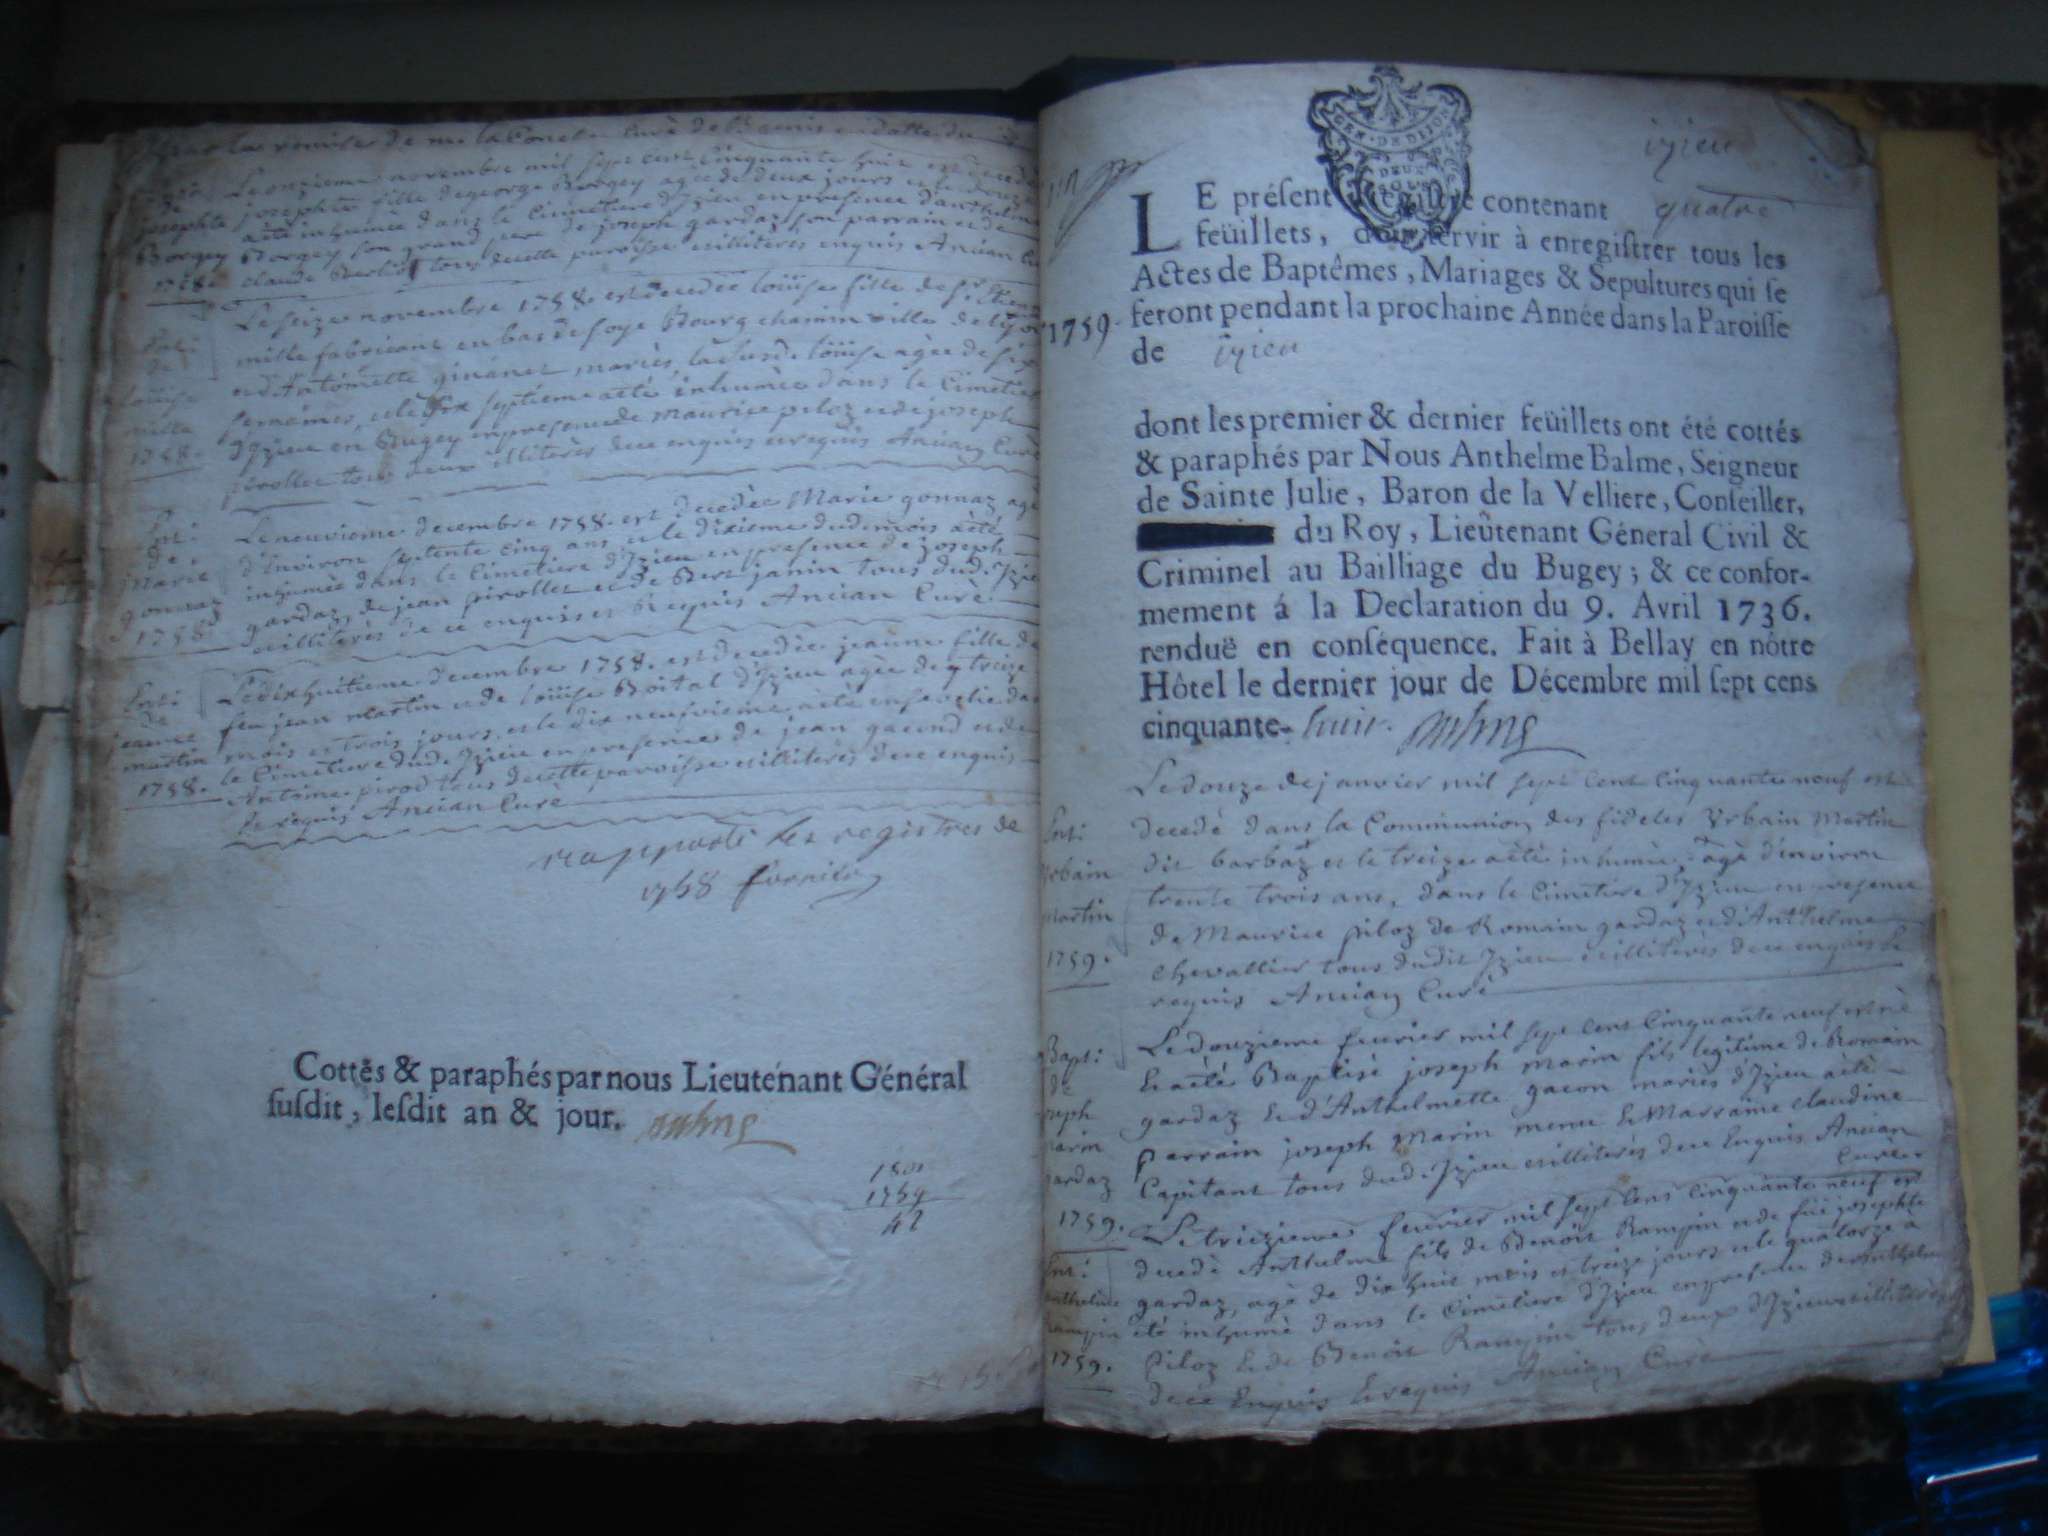 Le onzieme novembre mil sept cent cinquante huit est decedé
josephte josephte fille de george Borgey agée de deux jours
a été inhumée dans le Cimmetiere d'Izieu en presence d'anthelme
Borgey Borgey son grand pere de joseph gardaz son parrain et de
1758. claude Berlio tous de cette paroisse illiterés enquis Ancian
Le seize novembre 1758. est decedée loüise fille de Sr. Etienne
mille fabricant en bas de soye Bourg chanin ville de lyon
et d'Antoinette ginanet mariés, la susde. loüise agée de six
loüise
mille semaines, et le septieme a été inhumée dans le Cimetiere
1758. d'Izieu en Bugey en presence de maurice piloz et de joseph
pirollet tous deux illiterés de ce enquis et requis Ancian Curé
Ent: Le neuvieme decembre 1758. est decedée Marie gonnaz agée
de d'environ septente cinq ans et le dixieme dudt mois a été
Marie inhumée dans le Cimetiere d'Izieu en presence de joseph
gonnaz gardaz, de jean pirollet et de Bert janin tous dud. Izieu
1758 et illiterés de ce enquis et requis Ancian Curé
Ent: Le dix huitieme decembre 1758. est decedée jeanne fille de
de feu jean martin et de loüise Boital d'Izieu agée de treize
jeanne mois et trois jours, et le dix neufvieme a été ensevelie dans
martin le Cimetiere dud. Izieu en presence de jean gacond et de
1758. Antoine pirod tous de cette paroisse et illiterés de ce enquis
et requis Ancian Curé
rapporté les registres de
1758
Cottés & paraphés par nous Lieutenant Général
susdit, lesdit an & jour.
1801
1759
42
GEN. DE DIJON
DEUX
SOLS
izieu
LE présent Registre contenant quatre
feüillets, doit servir à enregistrer tous les
Actes de Baptêmes, Mariages & Sepultures qui se
1759. feront pendant la prochaine Année dans la Paroisse
de izieu
dont les premier & dernier feüillets ont été cottés
& paraphés par Nous Anthelme Balme, Seigneur
de Sainte Julie, Baron de la Velliere, Conseiller,
du Roy, Lieûtenant Géneral Civil &
Criminel au Bailliage du Bugey; & ce confor-
mement á la Declaration du 9. Avril 1736.
renduë en conséquence. Fait à Bellay en nôtre
Hôtel le dernier jour de Décembre mil sept cens
cinquante- huit.
Le douze de janvier mil sept cent cinquante neuf est
Ent: decedé dans la Communion des fideles Urbain Martin
Urbain dit barbaz et le treize a été inhumé, agé d'environ
trente trois ans, dans le Cimetiere d'Izieu en presence
Martin de Maurice piloz de Romain gardaz et d'Anthelme
1759. Chevallier tous dudit Izieu et illiterés de ce enquis &
requis Ancian Curé
Bapt: Le douzieme fevrier mil sept cent cinquante neuf est né
de & a été Baptisé joseph marin fils legitime de Romain
joseph gardaz & d'Anthelmette gacon mariés d'Izieu a été
marin parrain joseph Marin menu & Marraine claudine
gardaz Capitant tous dud. Izieu et illiterés de ce Enquis Ancian
Curé.
1759. Le treizieme fevrier mil sept cens cinquante neuf est
Ent: decedé Anthelme fils de Benoit Rampin et de füe josephte
anthelme gardaz, agé de dix huit mois et treize jours et le quatorze a
Rampin été inhumé dans le Cimetiere d'Izieu en presence d'anthelme
1759. Piloz & de Benoit Rampin tous deux d'Izieu et illiterés
de ce Enquis & requis Ancian Curé